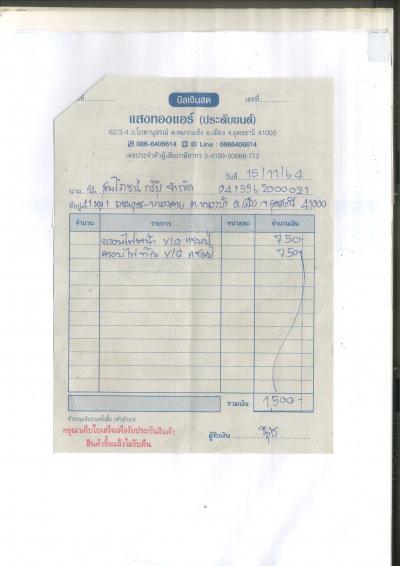 ที่ บิลเงินสด เลขที่
แสงทองแอร์ (ประดับยนต์)
62/3-4 ถ.โภคานุสรณ์ ต.หมากแข้ง อ.เมือง จ.อุดรธานี 41000
086-6406614 ID Line : 0866406614
เลขประจำตัวผู้เสียภาษีอากร 3-4199-00666-772
วันที่ 15/11/64
นาม จำกัด
ที่อยู่ 41000
จำนวน รายการ หน่วยละ จำนวนเงิน
ครอบไฟหน้า V/G 750-
ครอบไฟท้าย V/G 750-
รวมเงิน 1,500-
จำนวนเงินรวมทั้งสิ้น (ตัวอักษร)
กรุณาเก็บใบเสร็จเพื่อรับประกันสินค้า
สินค้าซื้อแล้วไม่รับคืน
ผู้รับเงิน